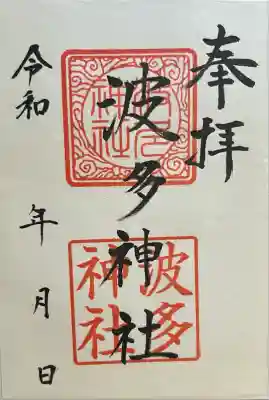 奉拝
波多神社
令和 年 月 日
波多
神社